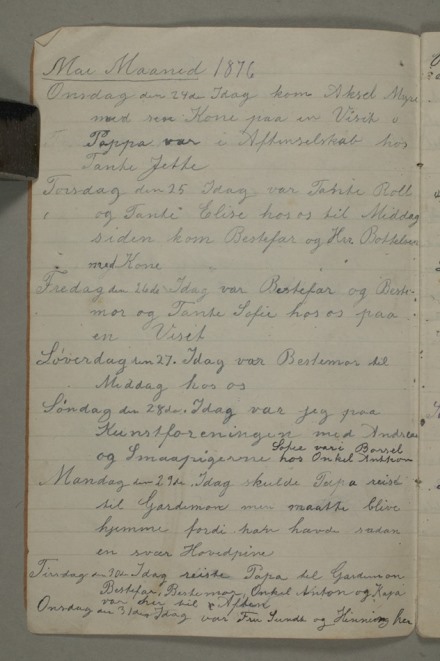 Mai Maaned 1876
Onsdag den 24de Idag kom Aksel Myre
med sin Kone paa en Visit
Pappa var i Aftenselskab hos
Tante Jette
Torsdag den 25 Idag var Tante Roll
og Tante Elise hos os til Middag
siden kom Bestefar og Hrr
med Kone
Fredag den 26de Idag var Bestefar og Beste-
mor og Tante Sofie hos os paa
en Visit
Løverdag den 27. Idag var Bestemor til
Middag hos os
Søndag den 28de. Idag var jeg paa
Kunstforeningen med Andrea
og Smaapigerne Sofie var i Barsel
hos Onkel Anthon
Mandag den 29de. Idag skulde Papa reise
til Gardemon men maatte blive
hjemme fordi han havde sadan
en svær Hovedpine
Tirsdag den 30de Idag reiste Papa til Gardemon
Bestefar, Bestemor, Onkel Anton og
var her til Aften
Onsdag den 31de Idag var Fru Sundt og Henning her